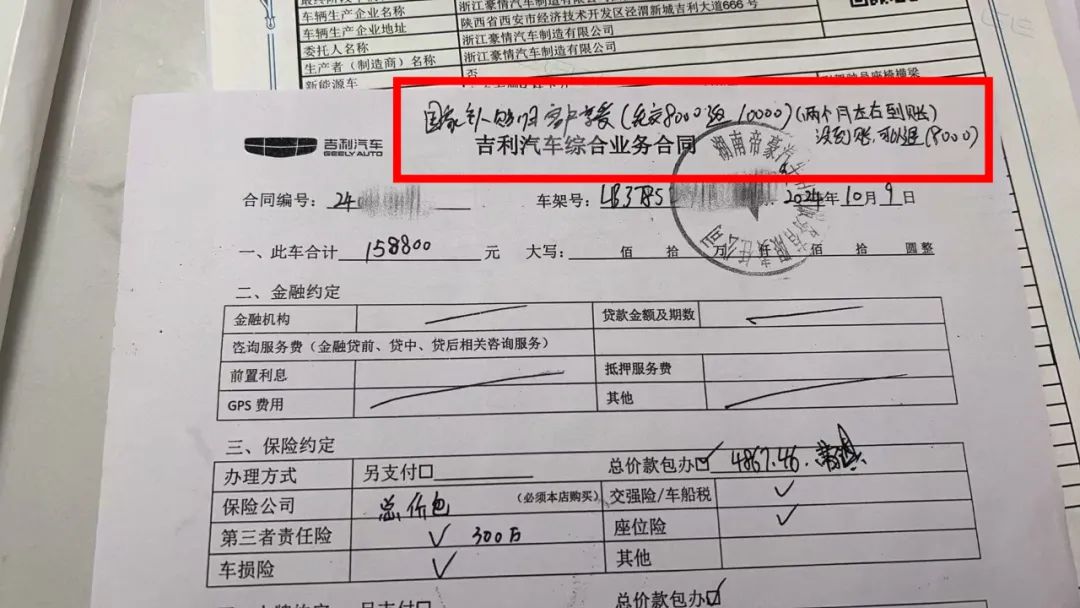 车辆生产企业名称 浙江豪情汽车制造有限公司
车辆生产企业地址 陕西省西安市经济技术开发区泾渭新城吉利大道666号
委托人名称 浙江豪情汽车制造有限公司
生产者（制造商）名称 浙江豪情汽车制造有限公司
新能源车 否
国家补 归客户享受（先交8000返10000）（两个月左右到账）
没到账，可退（8000）
吉利汽车
GEELY AUTO
吉利汽车综合业务合同
湖南帝豪汽车 有限责任公司
合同编号：24 车架号：LB37852 2024年10月9日
一、此车合计 158800 元 大写： 佰 拾 万 仟 佰 拾 圆整
二、金融约定
金融机构 贷款金额及期数
咨询服务费（金融贷前、贷中、贷后相关咨询服务）
前置利息 抵押服务费
GPS 费用 其他
三、保险约定
办理方式 另支付□ 总价款包办☑ 4867.46.
保险公司 总价包 （必须本店购买） 交强险/车船税 ✓
第三者责任险 ✓ 300万 座位险 ✓
车损险 ✓ 其他
另支付□ 总价款包办☑